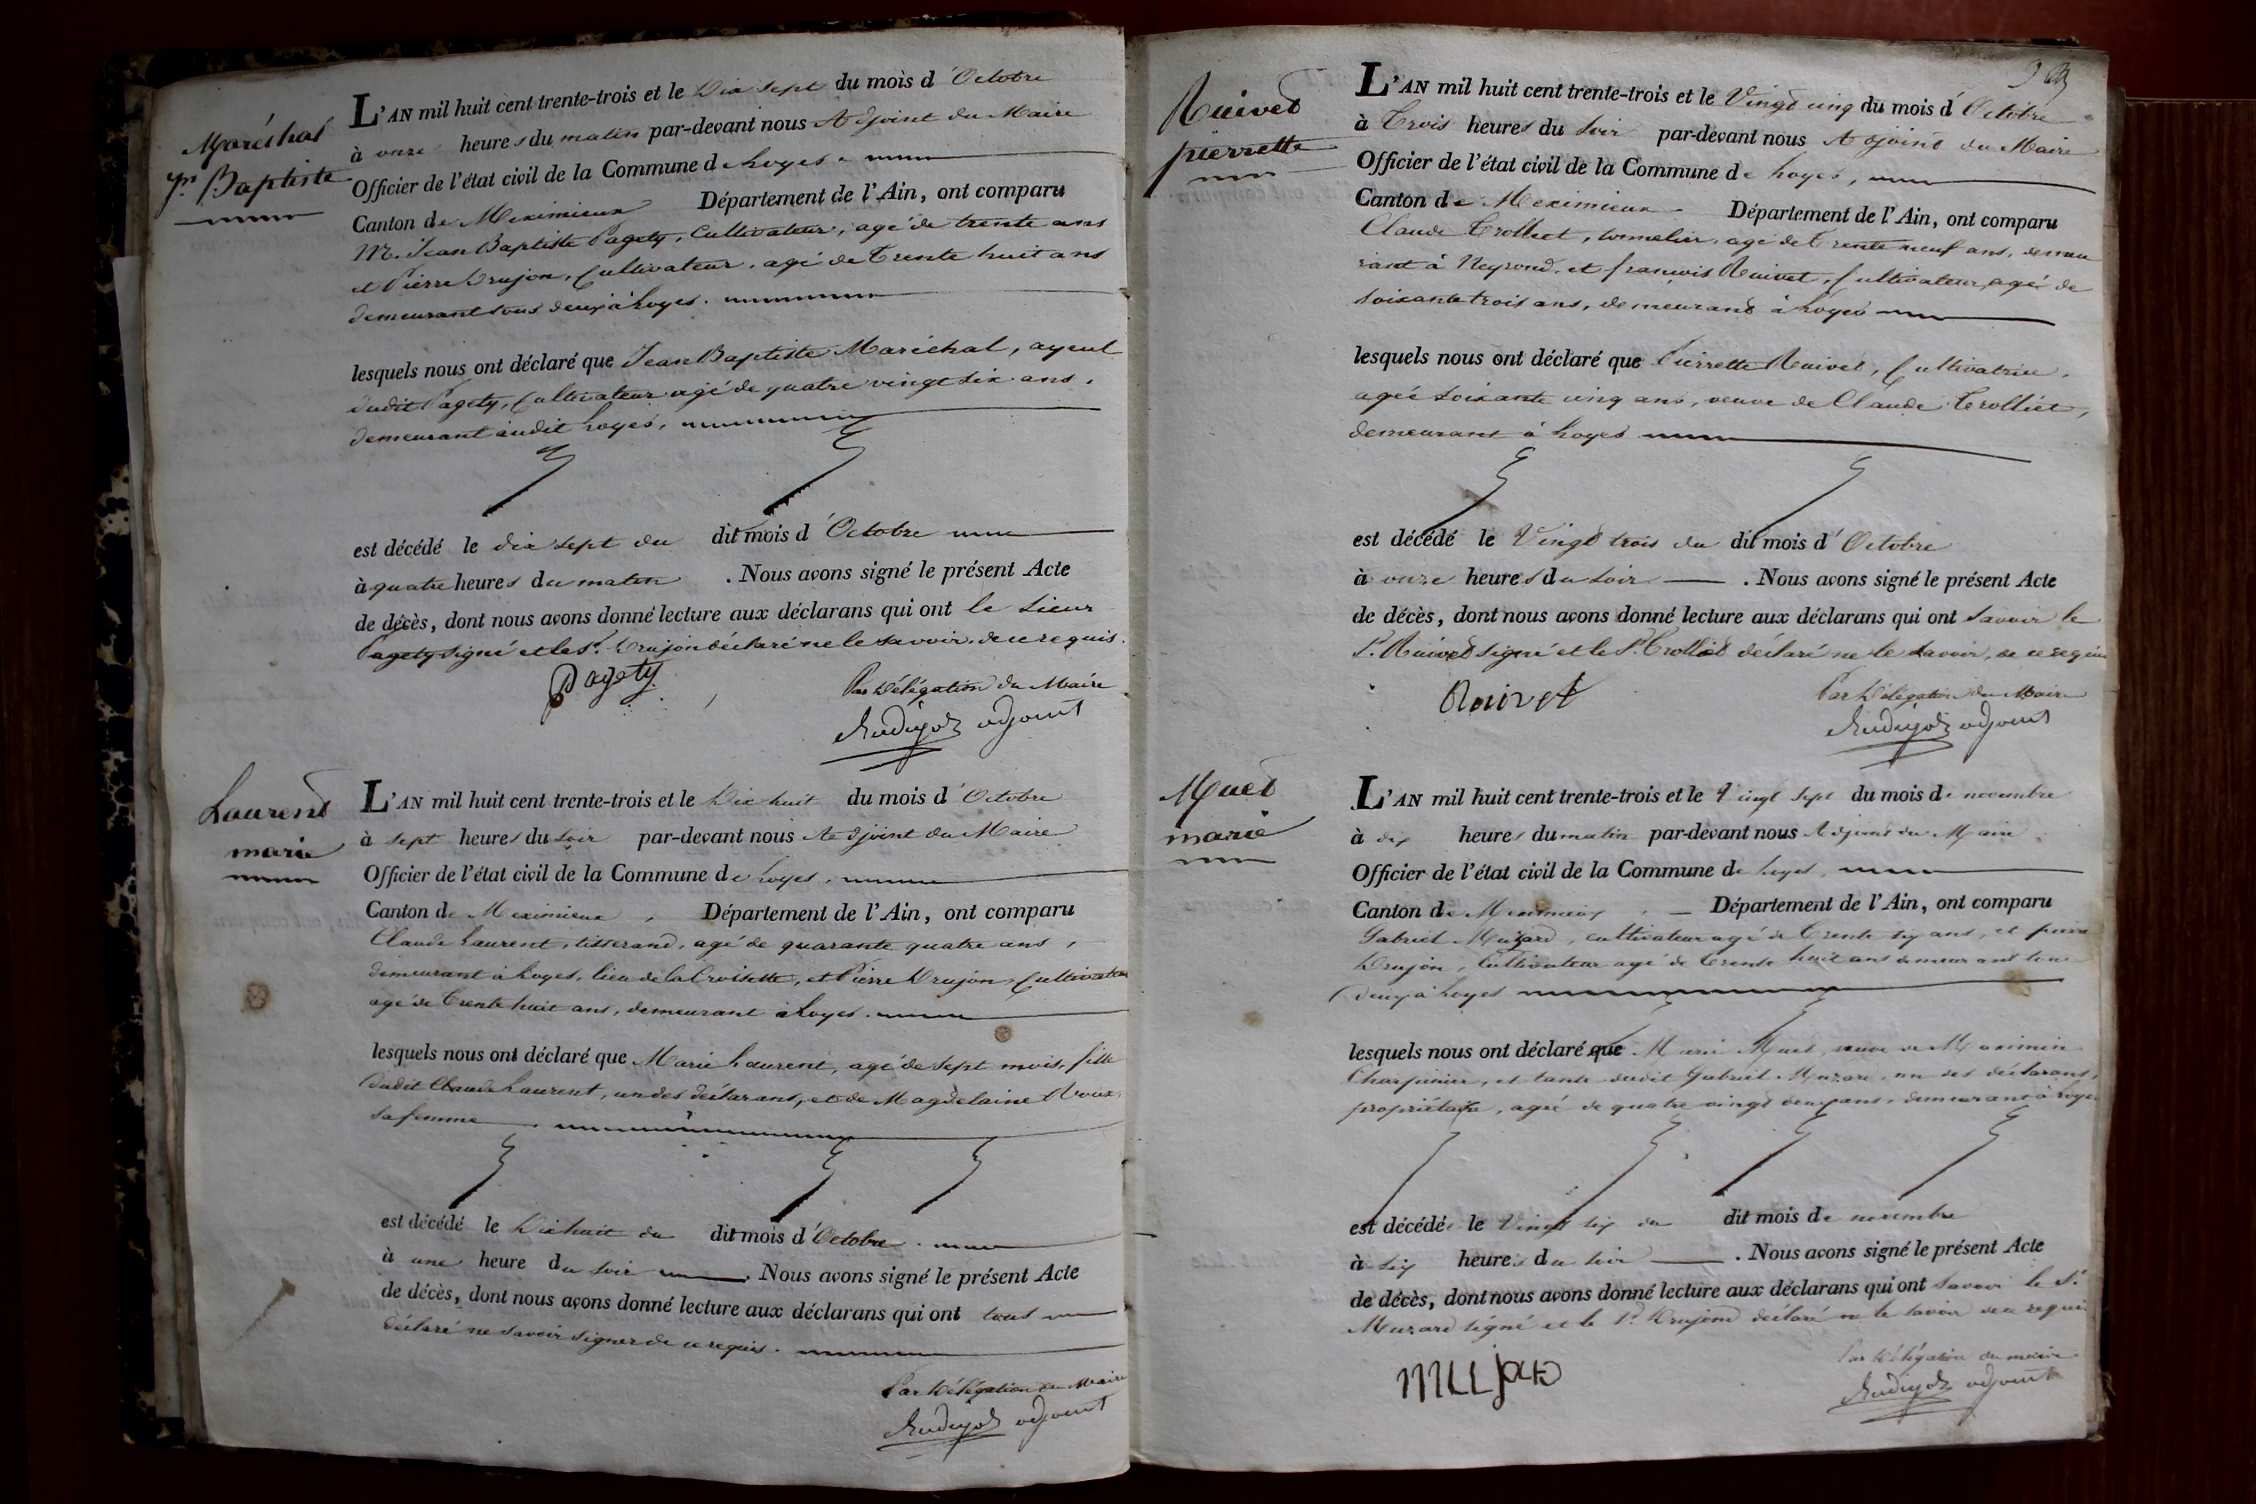 Maréchal
Jn Baptiste
L'AN mil huit cent trente-trois et le Dix sept du mois d'Octobre
à onze heures du matin par-devant nous Adjoint du Maire
Officier de l'état civil de la Commune de Loyes
Canton de Meximieux Département de l'Ain, ont comparu
M. Jean Baptiste Pagety, Cultivateur, agé de trente ans
et Pierre Drujon, Cultivateur, agé de Trente huit ans
demeurant tous deux à Loyes.
lesquels nous ont déclaré que Jean Baptiste Maréchal, ayeul
dudit Pagety, Cultivateur agé de quatre vingt six ans,
demeurant audit Loyes,
est décédé le dix sept du dit mois d'Octobre
à quatre heures du matin . Nous avons signé le présent Acte
de décès, dont nous avons donné lecture aux déclarans qui ont le Sieur
Pagety signé et le Sr. Drujon déclaré ne le savoir, de ce requis.
Pagety
Par Délégation du Maire
adjoint
Laurent
marie
L'AN mil huit cent trente-trois et le Dix huit du mois d'Octobre
à sept heures du soir par-devant nous Adjoint du Maire
Officier de l'état civil de la Commune de Loyes,
Canton de Meximieux, Département de l'Ain, ont comparu
Claude Laurent, tisserand, agé de quarante quatre ans,
demeurant à Loyes, lieu de la Croisette, et Pierre Drujon, Cultivateur
agé de Trente huit ans, demeurant à Loyes.
lesquels nous ont déclaré que Marie Laurent, agé de sept mois, fille
dudit Claude Laurent, un des déclarans, et de Magdelaine Roux,
sa femme
est décédé le Dix huit du dit mois d'Octobre.
à une heure du soir . Nous avons signé le présent Acte
de décès, dont nous avons donné lecture aux déclarans qui ont tous
déclaré ne savoir signer de ce requis.
Par Délégation du Maire
adjoint
Ruivet
pierrette
L'AN mil huit cent trente-trois et le Vingt cinq du mois d'Octobre
à Trois heures du soir par-devant nous Adjoint du Maire
Officier de l'état civil de la Commune de Loyes,
Canton de Meximieux. Département de l'Ain, ont comparu
Claude Trolliet, tonnelier, agé de Trente neuf ans, demeu
rant à Neyrond, et françois Ruivet, Cultivateur, agé de
soixante trois ans, demeurant à Loyes
lesquels nous ont déclaré que Pierrette Ruivet, Cultivatrice,
agée soixante cinq ans, veuve de Claude Trolliet,
demeurant à Loyes
est décédé le Vingt trois du dit mois d'Octobre
à onze heures du soir . Nous avons signé le présent Acte
de décès, dont nous avons donné lecture aux déclarans qui ont savoir le
S. Ruivet signé et le S. Trolliet déclaré ne le savoir, de ce requis
Ruivet
Par Délégation du Maire
adjoint
marie
L'AN mil huit cent trente-trois et le Vingt sept du mois de novembre
à dix heures du matin par-devant nous Adjoint du Maire
Officier de l'état civil de la Commune de Loyes,
Canton de Meximieux Département de l'Ain, ont comparu
Gabriel Muzard, cultivateur agé de Trente six ans, et pierre
Drujon, Cultivateur agé de Trente huit ans demeurant tous
deux à Loyes
lesquels nous ont déclaré que Marie veuve de Maximin
Charpinier, et tante dudit Gabriel Muzard, un des déclarans,
propriétaire, agée de quatre vingt ans, demeurant à Loyes
est décédée le Vingt six du dit mois de novembre
à six heures du soir . Nous avons signé le présent Acte
de décès, dont nous avons donné lecture aux déclarans qui ont savoir le Sr
Muzard signé et le Sr. Drujond déclaré ne le savoir de ce requis
Par Délégation du maire
adjoint